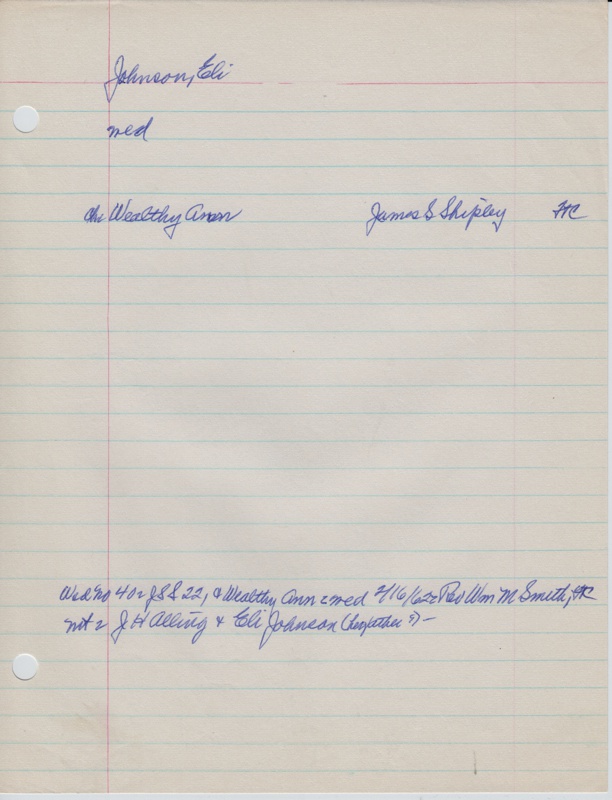 Johnson, Eli
med
ch: Wealthy Ann James S Shipley HC
Wed no 402 JSS 22, & Wealthy Ann = med 2/16/62 = Rev Wm M Smith, HC
wit = J H Alling & Eli Johnson (her father ?) —